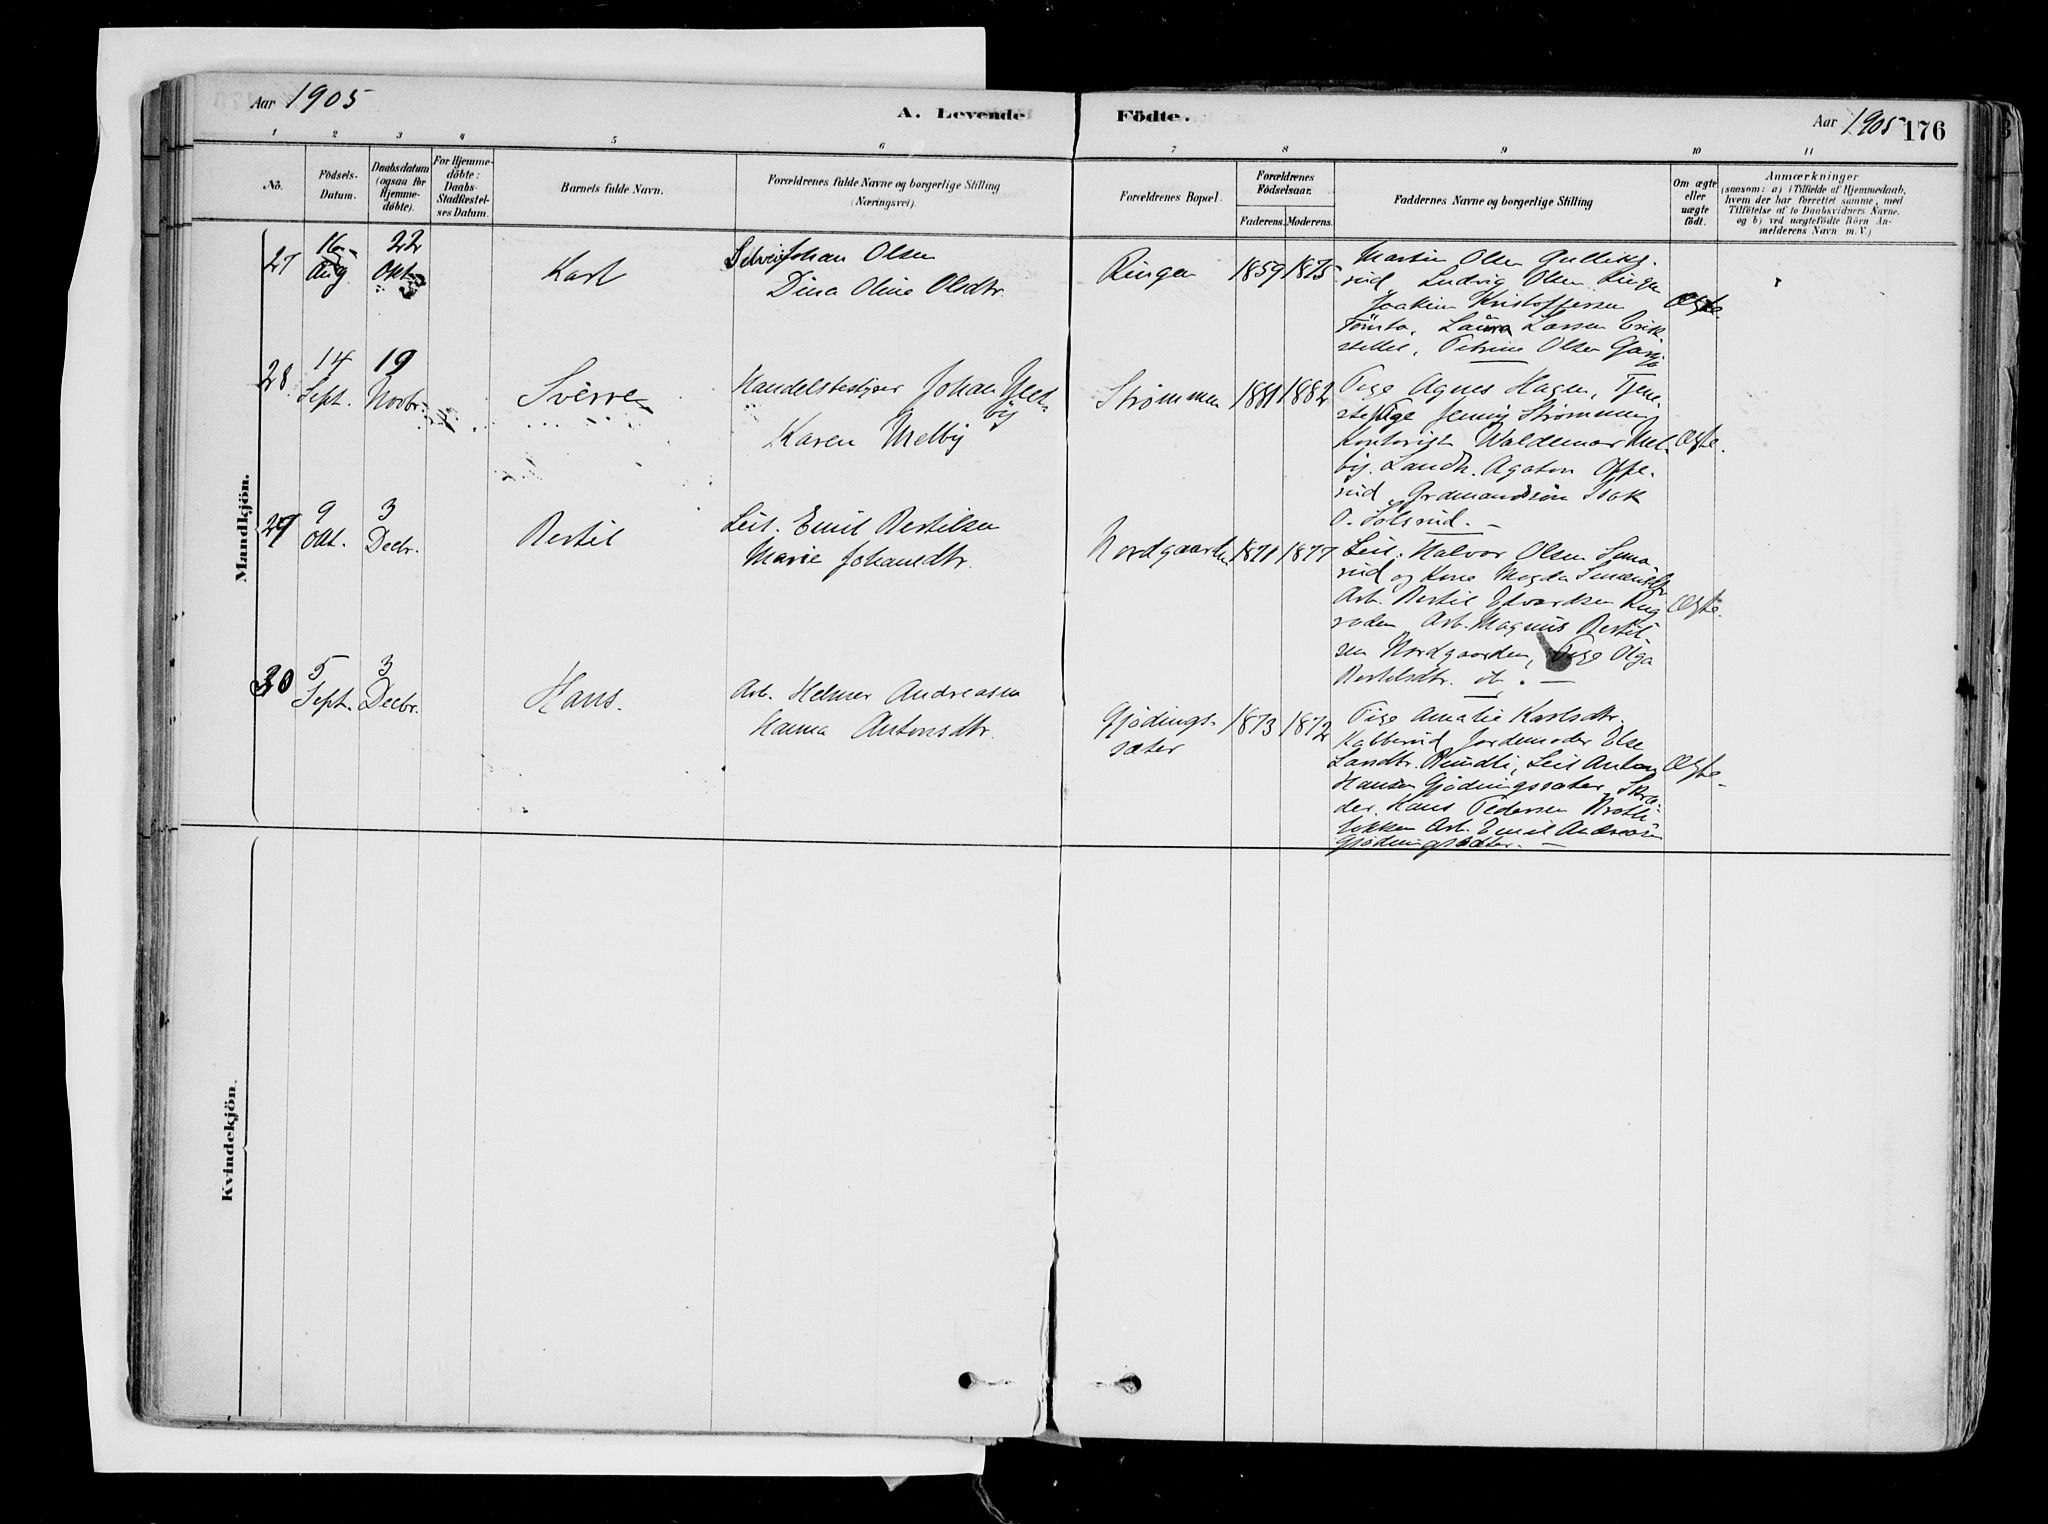 Aar 1905
A. Levende Födte.
Aar 1905 176
1 2 3 4 5 6 7 8 9 10 11
No.
Födsels-Datum.
Daabsdatum (ogsaa for Hjemme-döbte).
For Hjemme-döbte: Daabs-Stadfæstel-ses Datum.
Barnets fulde Navn.
Forældrenes fulde Navne og borgerlige Stilling
(Næringsvei).
Forældrenes Bopæl.
Forældrenes Födselsaar.
Faderens. Moderens.
Faddernes Navne og borgerlige Stilling
Om ægte eller uægte födt.
Anmærkninger
(saasom: a) i Tilfælde af Hjemmedaab,
hvem der har forrettet samme, med
Tilföielse af to Daabsvidners Navne,
og b) ved uægtefödte Börn An-
melderens Navn m. V.)
Mandkjön.
27 16 Aug 22 Okt.
Karl
Selvei Johan Olsen
Dina Oline Olsdtr.
Ringen 1859 1875
Martin Olsen Gulliks-
rud, Ludvig Olsen Ringen
Joakim Kristoffersen
Tömta, Laura Larsen Erik-
stellet, Petrine Olsen
Ægte.
28 14 Sept. 19 Novbr.
Sverre
Handelsbestyrer Johan Melby
Karen Melby
Strømmen 1881 1882
Pige Agnes Hagen, Tjene-
stepige Jenny Strømmen,
Kontorist Waldemar Mel-
by. Landh. Agaton Oppe-
rud, Grdmandssøn Isak
O. Solsrud. —
Ægte.
29 9 Okt. 3 Decbr.
Bertil
Leil. Emil Bertilsen
Marie Johansdtr.
Nordgaarden 1871 1877
Leil. Halvor Olsen
rud og Kone Magda
Arb. Bertil Edvardsen
Arb. Magnus Bertil-
sen Nordgaarden, Pige Olga
Bertilsdtr. ib. —
Ægte.
30 5 Sept. 3 Decbr.
Hans.
Arb. Helmer Andreasen
Hanna Antonsdtr.
Gjödings-
sæter 1873 1872
Pige Amalie Karlsdtr.
Kabberud, Jordemoder Else
Landtr. Rundli, Leil Anton
Hansen Gjödingssæter, Skræ-
der Hans Pedersen Brotli-
lökken Arb. Emil Andreasen
Gjödingssæter. —
Ægte.
Kvindekjön.